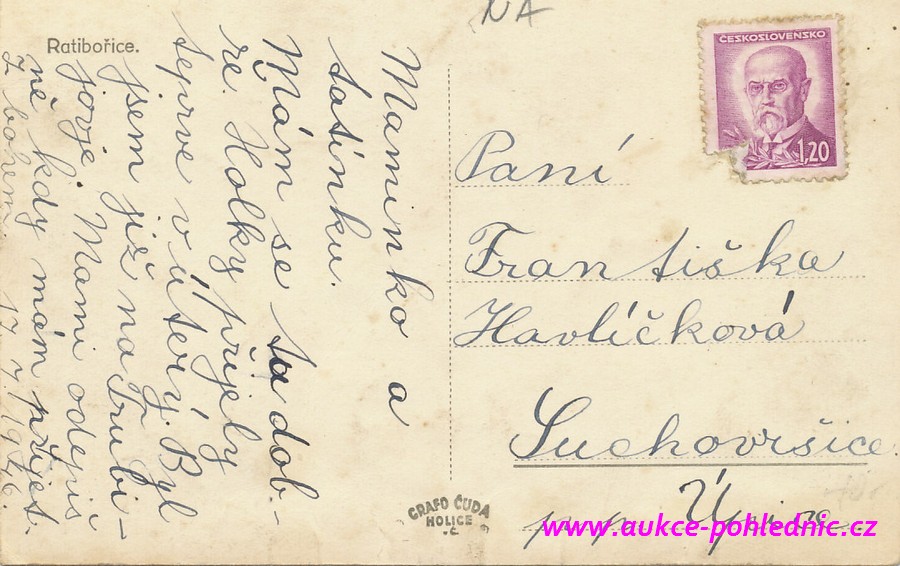 NA
Ratibořice.
ČESKOSLOVENSKO
1,20
Maminko a
tatínku.
Mám se tadob-
ře. Holky přijely
teprve v úterý. Byl
jsem již na Trubi-
jovje. Mami odepiš
ně kdy mám přijet.
Z bohem 17. 7. 1946.
Paní
Františka
Havlíčková
Suchovršice
p. p. Úpice
GRAFO ČUDA
HOLICE
www.aukce-pohlednic.cz